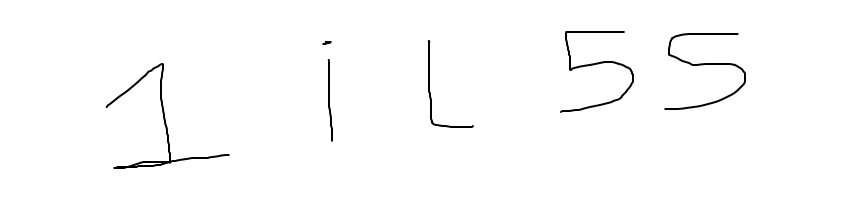 1 i L 5 S